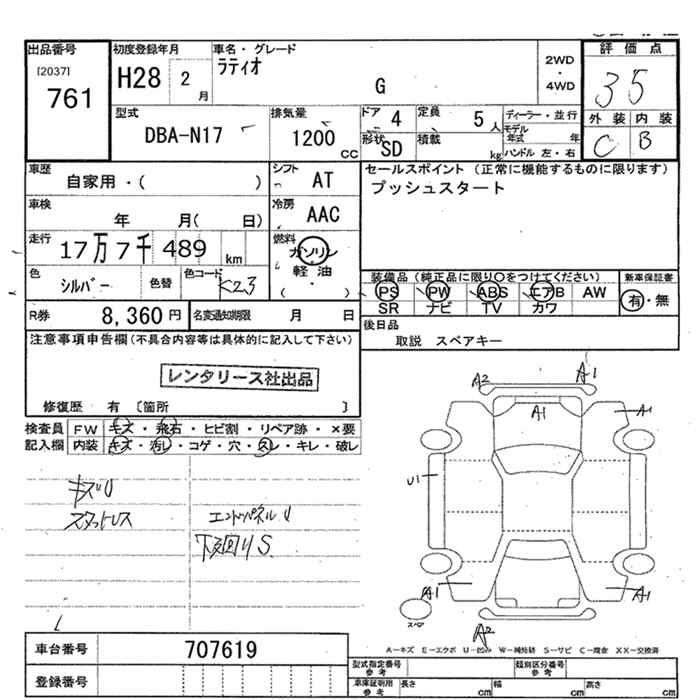 出品番号 初度登録年月 車名・グレード 評価点
[2037] ラティオ 2WD
761 H28 2月 G ・ 35
4WD
型式 排気量 ドア 4 定員 5人 ディーラー・並行 外装 内装
DBA-N17 1200cc 形状 SD 積載 kg モデル年式 年 C B
ハンドル 左・右
車歴 シフト セールスポイント (正常に機能するものに限ります)
自家用・( ) AT プッシュスタート
車検 冷房
年 月( 日) AAC
走行 燃料
17万7千489km ガソリン
軽・油
色 色コード 装備品 (純正品に限り○をつけてください) 新車保証書
シルバー 色替 K23 ( ・ ) PS PW ABS エアB AW 有・無
SR ナビ TV カワ
R券 8,360円 名変通知期限 月 日 後日品
注意事項申告欄(不具合内容等は具体的に記入して下さい) 取説 スペアキー
レンタリース社出品
修復歴 有 〔箇所 〕
検査員 FW キズ・飛石・ヒビ割・リペア跡・×要
記入欄 内装 キズ・汚レ・コゲ・穴・スレ・キレ・破レ
A2 A1
A1 A1
U1
キズU
スタットレス エンドパネルU
下廻りS
A1 A1
スペア
A2
A-キズ E-エクボ U-凹み W-補修跡 S-サビ C-腐食 XX-交換済
車台番号 707619 型式指定番号 参考 類別区分番号 参考
登録番号 車庫証明用 参考 長さ cm 幅 cm 高さ cm